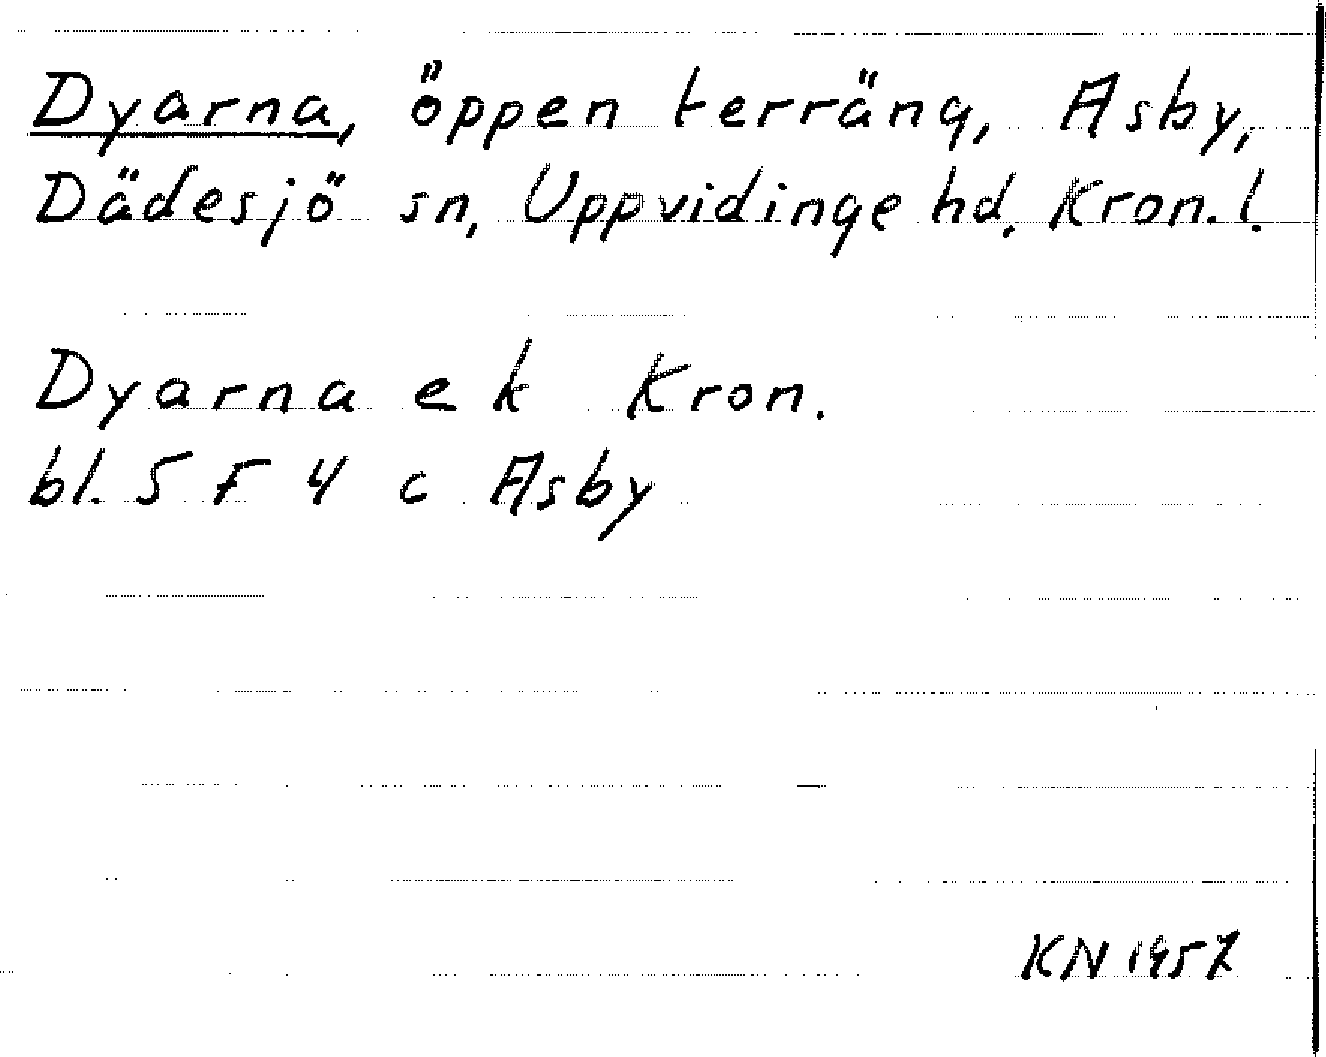 Dyarna, öppen terräng, Asby,
Dädesjö sn, Uppvidinge hd. Kron. l.
Dyarna ek Kron.
bl. 5 F 4 c Asby
KN 1957